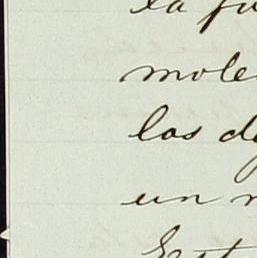 la fu
mole
los de
un n
Est